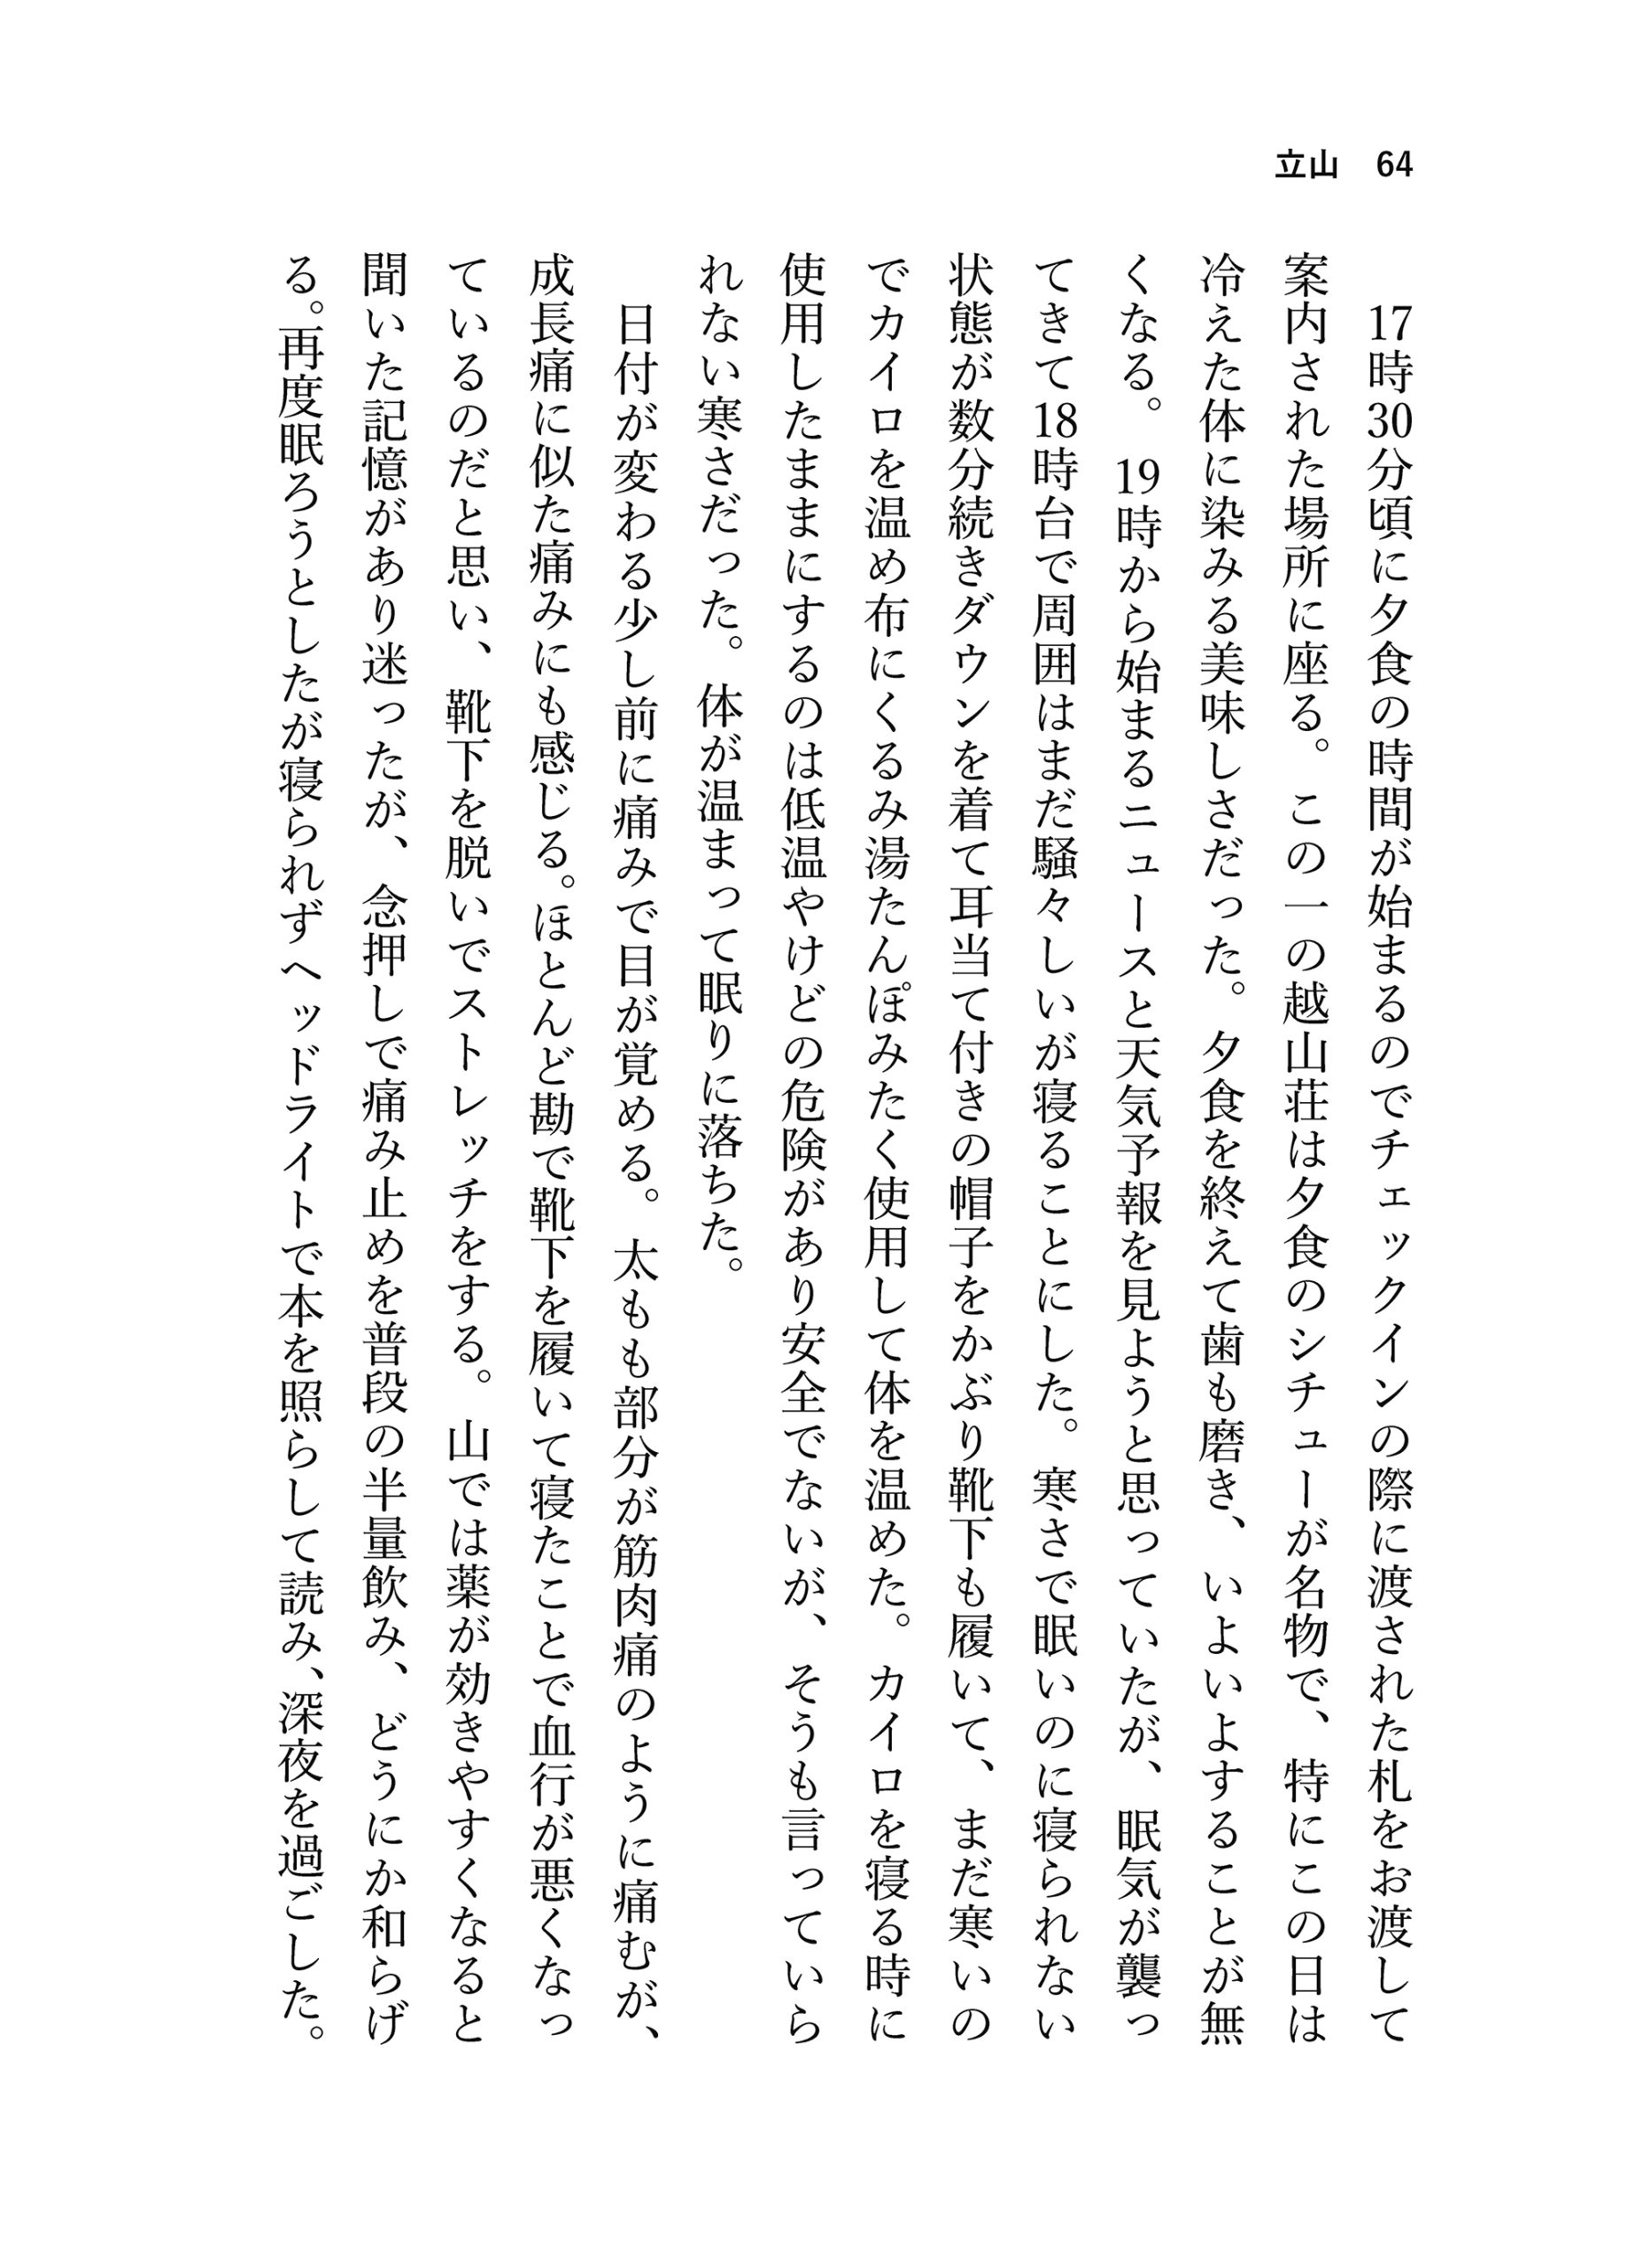 立山 64
17時30分頃に夕食の時間が始まるのでチェックインの際に渡された札をお渡して
案内された場所に座る。この一の越山荘は夕食のシチューが名物で、特にこの日は
冷えた体に染みる美味しさだった。夕食を終えて歯も磨き、いよいよすることが無
くなる。19時から始まるニュースと天気予報を見ようと思っていたが、眠気が襲っ
てきて18時台で周囲はまだ騒々しいが寝ることにした。寒さで眠いのに寝られない
状態が数分続きダウンを着て耳当て付きの帽子をかぶり靴下も履いて、まだ寒いの
でカイロを温め布にくるみ湯たんぽみたく使用して体を温めた。カイロを寝る時に
使用したままにするのは低温やけどの危険があり安全でないが、そうも言っていら
れない寒さだった。体が温まって眠りに落ちた。
日付が変わる少し前に痛みで目が覚める。太もも部分が筋肉痛のように痛むが、
成長痛に似た痛みにも感じる。ほとんど勘で靴下を履いて寝たことで血行が悪くなっ
ているのだと思い、靴下を脱いでストレッチをする。山では薬が効きやすくなると
聞いた記憶があり迷ったが、念押しで痛み止めを普段の半量飲み、どうにか和らげ
る。再度眠ろうとしたが寝られずヘッドライトで本を照らして読み、深夜を過ごした。